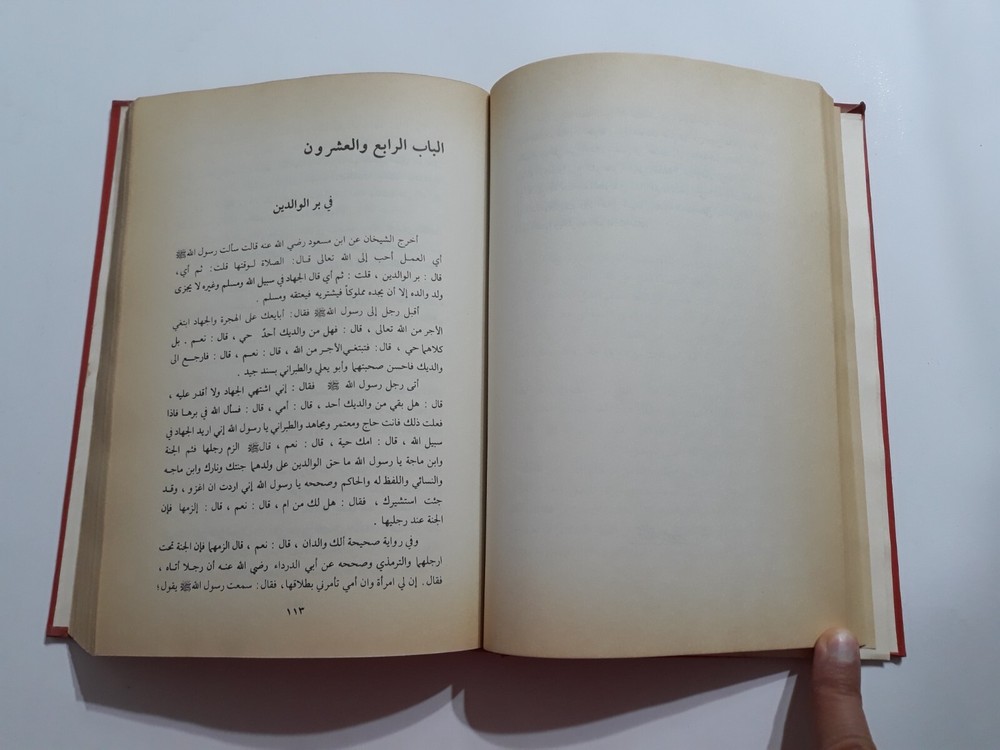 الباب الرابع والعشرون
في بر الوالدين
أخرج الشيخان عن ابن مسعود رضي الله عنه قالت سألت رسول الله ﷺ
أي العمل أحب إلى الله تعالى قال: الصلاة لوقتها قلت: ثم أي،
قال : بر الوالدين ، قلت : ثم أي قال الجهاد في سبيل الله ومسلم وغيره لا يجزى
ولد والده إلا أن يجده مملوكاً فيشتريه فيعتقه ومسلم .
أقبل رجل إلى رسول الله ﷺ فقال: أبايعك على الهجرة والجهاد ابتغي
الأجر من الله تعالى ، قال : فهل من والديك أحدٌ حي ، قال : نعم . بل
كلاهما حي ، قال : فتبتغي الأجر من الله ، قال : نعم ، قال : فارجع الى
والديك فاحسن صحبتهما وأبو يعلي والطبراني بسند جيد .
أتى رجل رسول الله ﷺ فقال : إني اشتهي الجهاد ولا أقدر عليه ،
قال : هل بقي من والديك أحد ، قال : أمي ، قال : فسأل الله في برها فاذا
فعلت ذلك فانت حاج ومعتمر ومجاهد والطبراني يا رسول الله إني اريد الجهاد في
سبيل الله ، قال : امك حية ، قال : نعم ، قال ﷺ الزم رجلها فثم الجنة
وابن ماجة يا رسول الله ما حق الوالدين على ولدهما جنتك ونارك وابن ماجه
والنسائي واللفظ له والحاكم وصححه يا رسول الله إني اردت ان اغزو ، وقد
جئت استشيرك ، فقال : هل لك من ام ، قال : نعم ، قال : إلزمها فإن
الجنة عند رجليها .
وفي رواية صحيحة ألك والدان ، قال : نعم ، قال الزمهما فإن الجنة تحت
ارجلهما والترمذي وصححه عن أبي الدرداء رضي الله عنه أن رجلا أتاه ،
فقال . إن لي امرأة وان أمي تأمرني بطلاقها، فقال : سمعت رسول الله ﷺ يقول :
١١٣